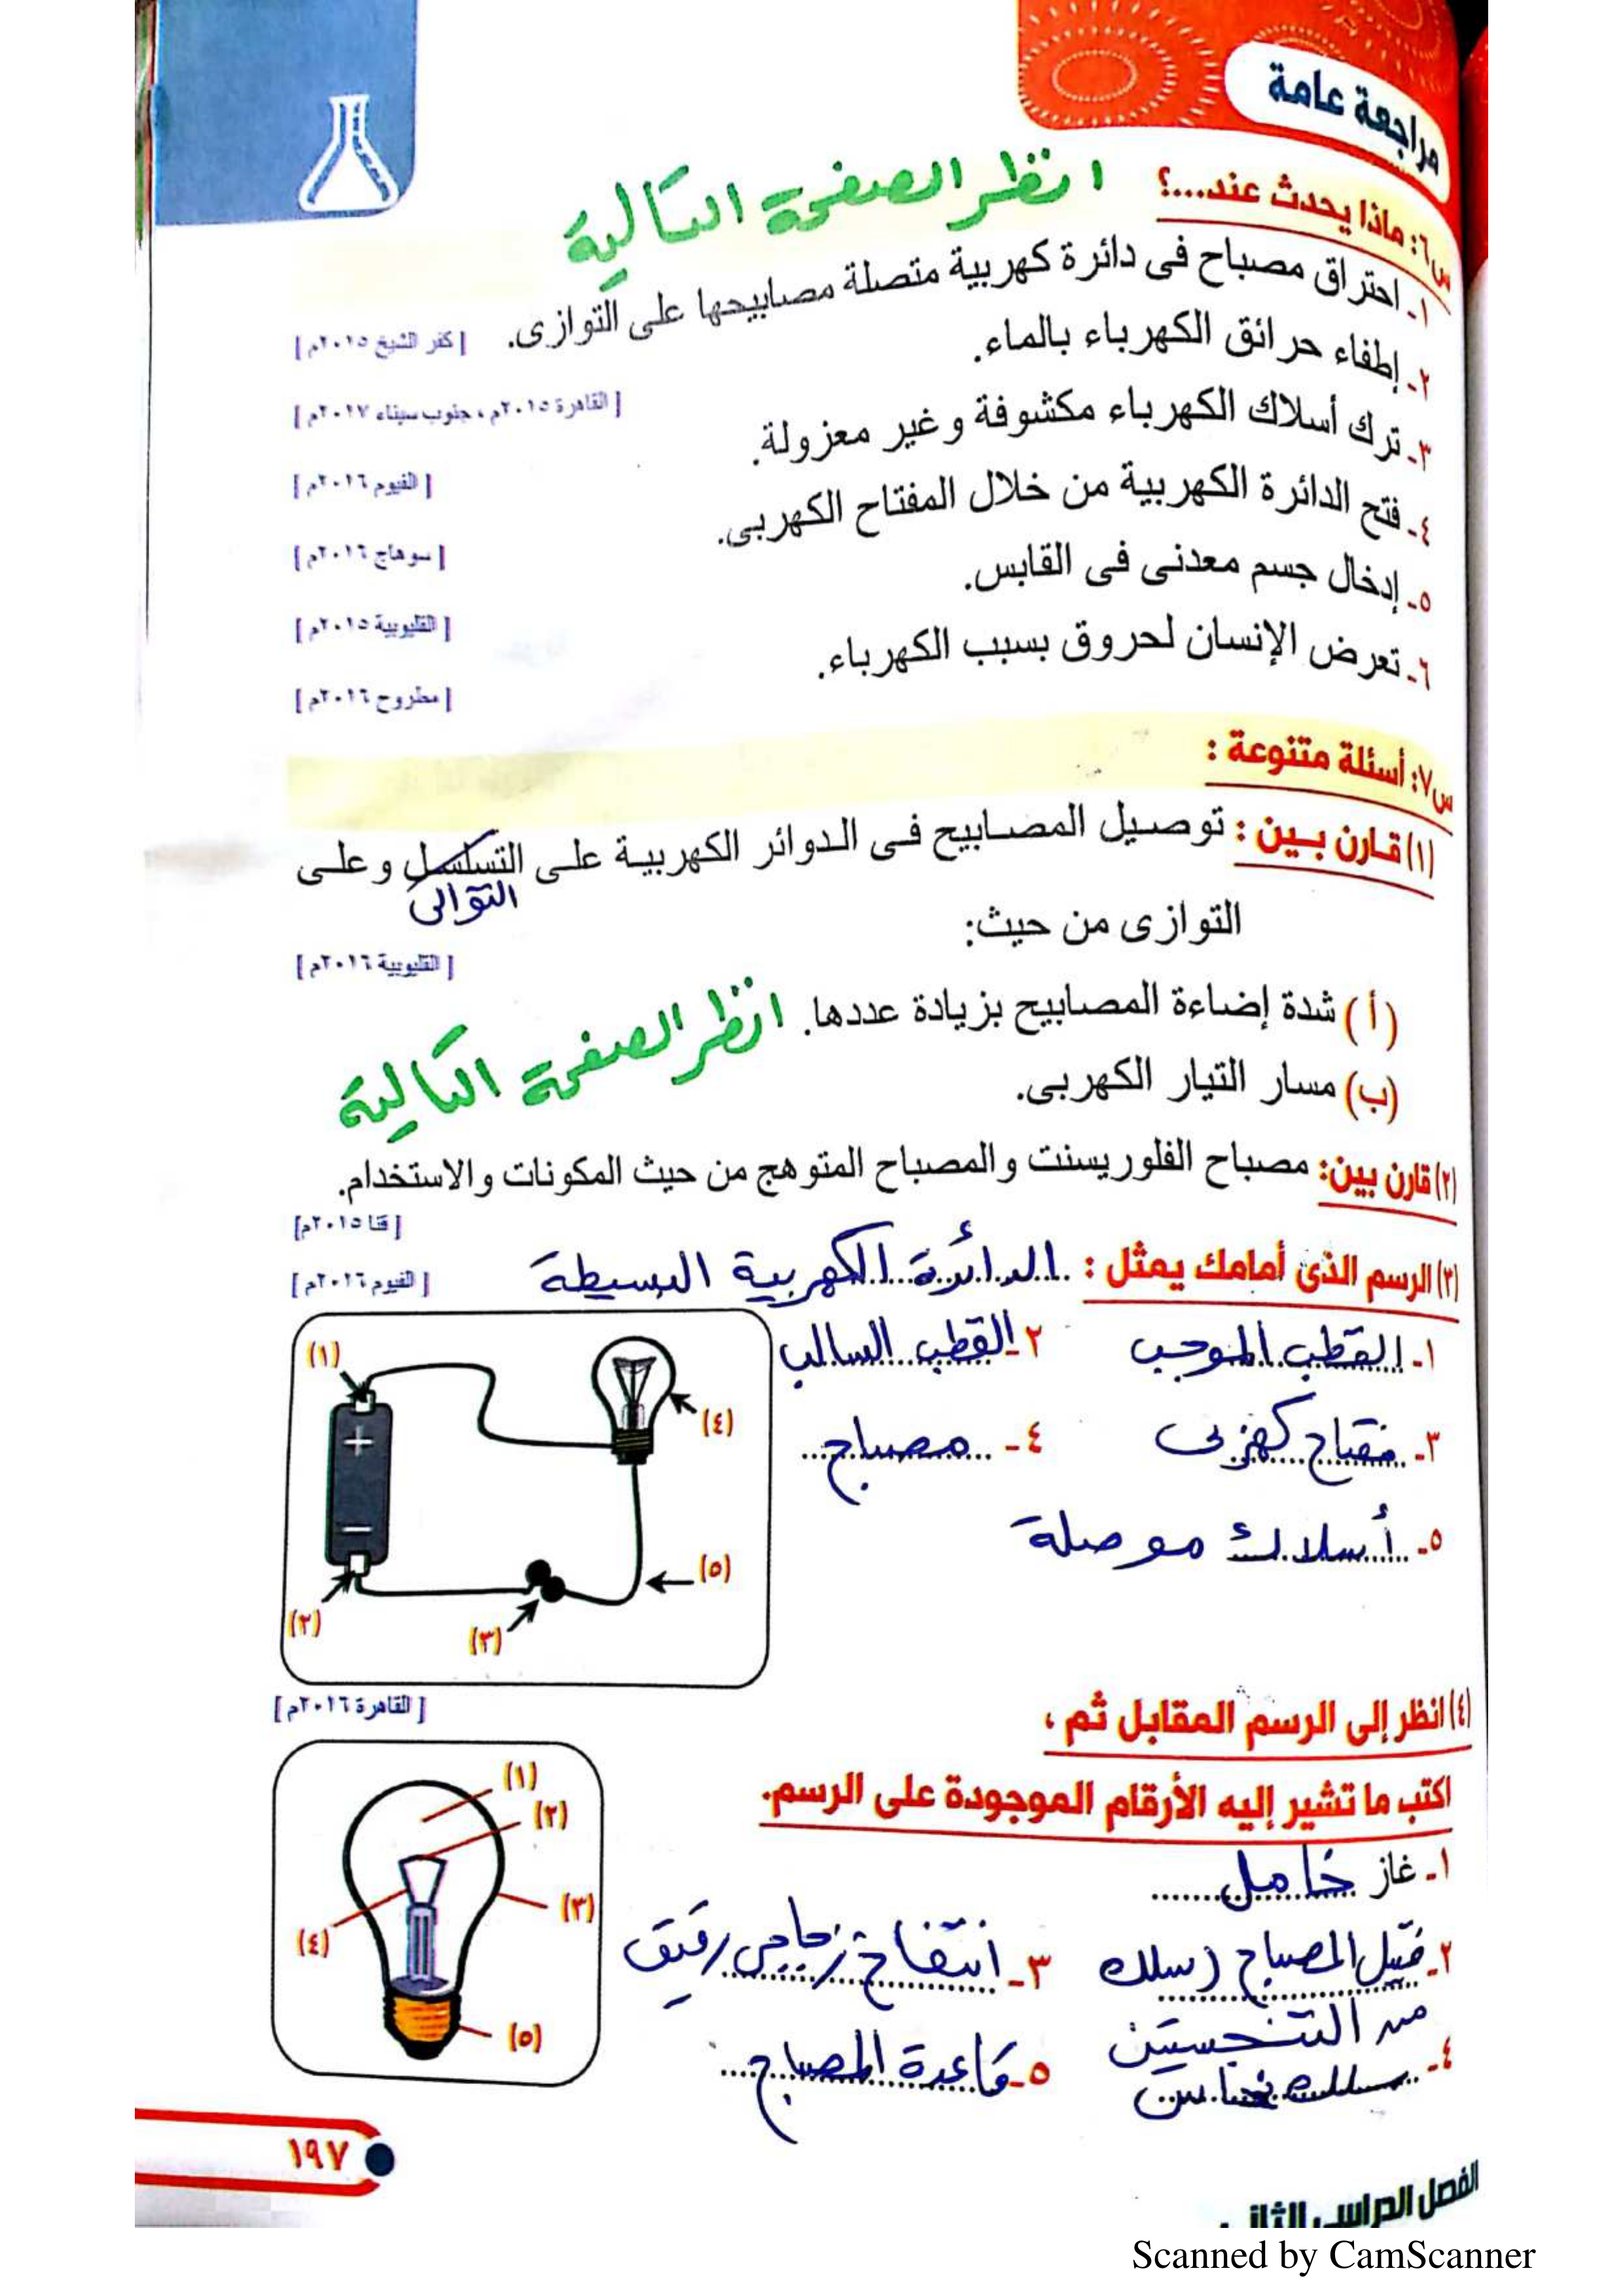 مراجعة عامة
س٦: ماذا يحدث عند....؟ انظر الصفحة التالية
١ـ احتراق مصباح فى دائرة كهربية متصلة مصابيحها على التوازى. [كفر الشيخ ٢٠١٥م]
٢ـ إطفاء حرائق الكهرباء بالماء. [القاهرة ٢٠١٥م، جنوب سيناء ٢٠١٧م]
٣ـ ترك أسلاك الكهرباء مكشوفة وغير معزولة. [الفيوم ٢٠١٦م]
٤ـ فتح الدائرة الكهربية من خلال المفتاح الكهربى. [سوهاج ٢٠١٦م]
٥ـ إدخال جسم معدنى فى القابس. [القليوبية ٢٠١٥م]
٦ـ تعرض الإنسان لحروق بسبب الكهرباء. [مطروح ٢٠١٦م]
س٧: أسئلة متنوعة :
(١) قارن بين : توصيل المصابيح فى الدوائر الكهربية على التسلسل وعلى
التوالى
التوازى من حيث:
[القليوبية ٢٠١٦م]
(أ) شدة إضاءة المصابيح بزيادة عددها. انظر الصفحة التالية
(ب) مسار التيار الكهربى.
(٢) قارن بين: مصباح الفلوريسنت والمصباح المتوهج من حيث المكونات والاستخدام.
[قنا ٢٠١٥م]
(٣) الرسم الذى أمامك يمثل : الدائرة الكهربية البسيطة [الفيوم ٢٠١٦م]
١ـ القطب الموجب ٢ـ القطب السالب
٣ـ مفتاح كهربى ٤ـ مصباح
٥ـ أسلاك موصلة
(١)
(٤)
(٥)
(٢)
(٣)
(٤) انظر إلى الرسم المقابل ثم ، [القاهرة ٢٠١٦م]
اكتب ما تشير إليه الأرقام الموجودة على الرسم.
١ـ غاز خامل
٢ـ فتيل المصباح (سلك ٣ـ انتفاخ زجاجى رقيق
من التنجستين
٤ـ سلك نحاس ٥ـ قاعدة المصباح
(١)
(٢)
(٣)
(٤)
(٥)
١٩٧
الفصل الدراسى الثانى
Scanned by CamScanner